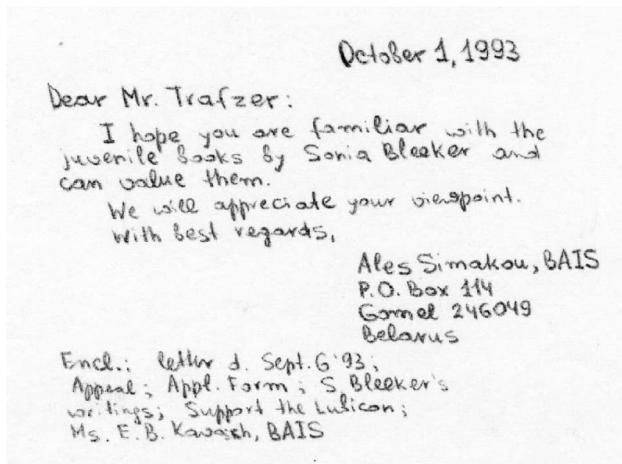 October 1, 1993
Dear Mr. Trafzer:
I hope you are familiar with the
juvenile books by Sonia Bleeker and
can value them.
We will appreciate your viewpoint.
With best regards,
Ales Simakou, BAIS
P.O. Box 114
Gomel 246049
Belarus
Encl.: letter d. Sept. 6 '93;
Appeal; Appl. Form; S. Bleeker's
writings; Support the Lubicon;
Ms. E. B. Kawash, BAIS